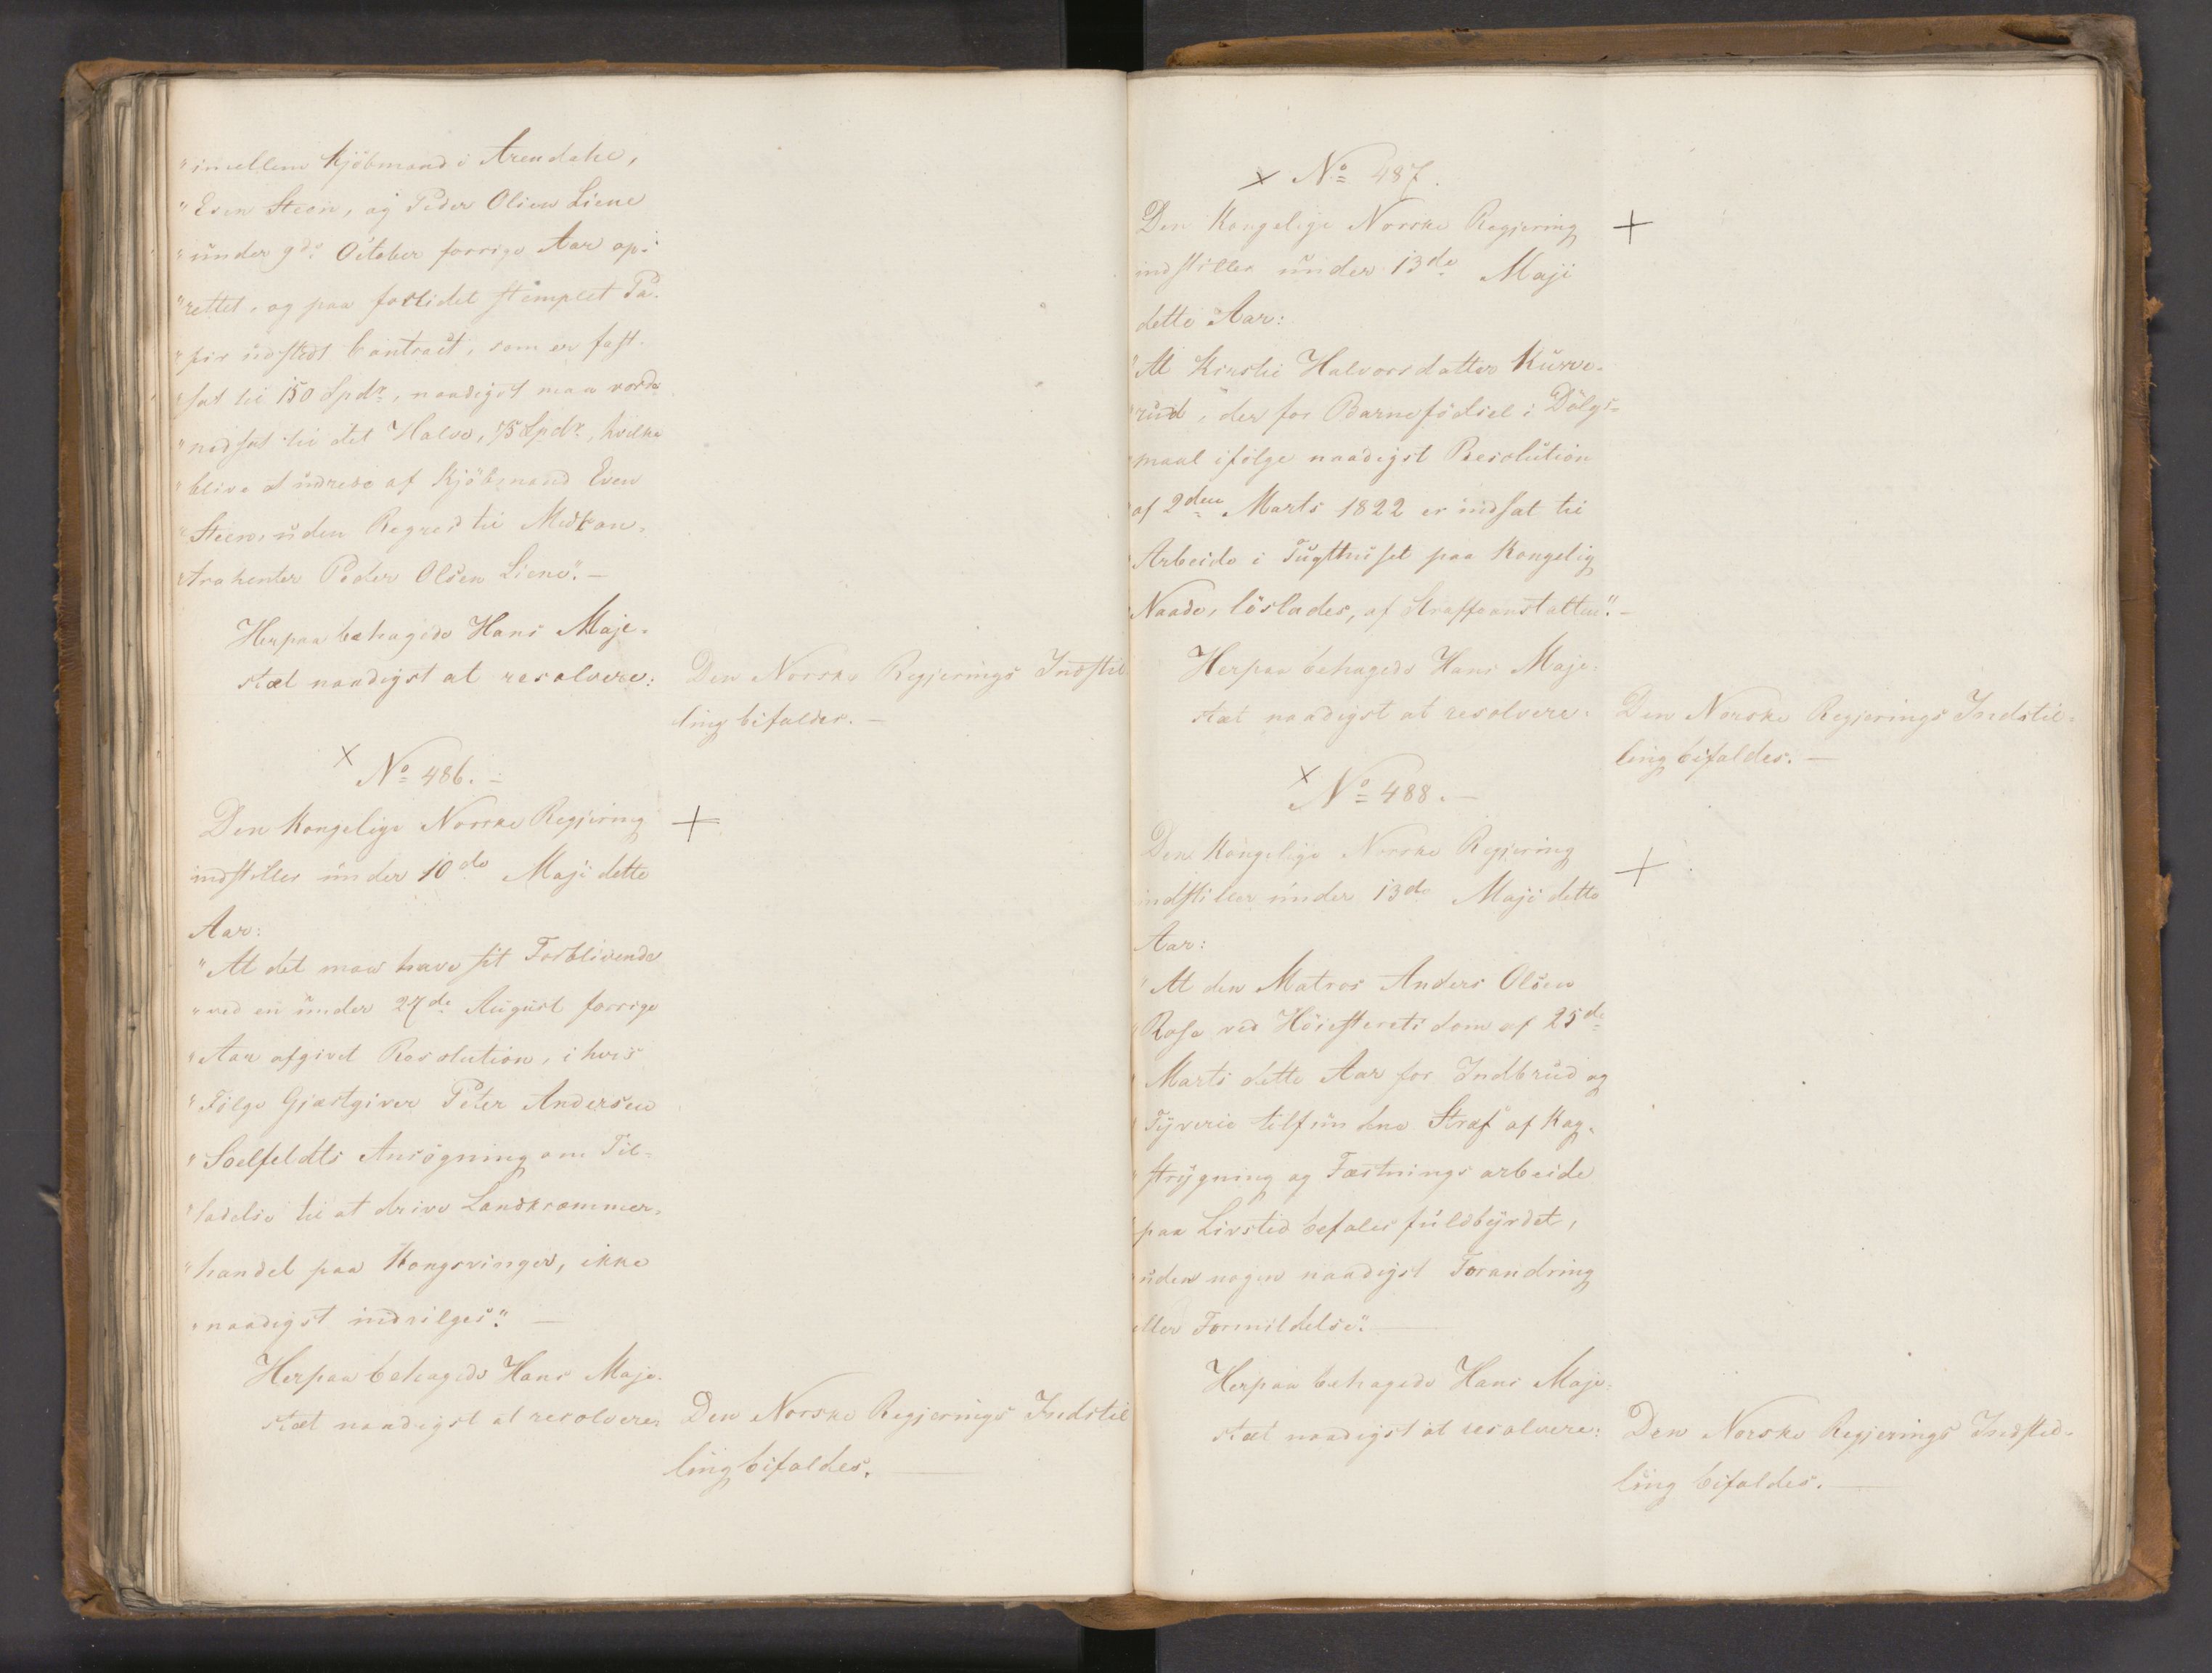 "imellem Kjöbmand i Arendahl,
"Even Steen, og Peder Olsen Liene
"under 9de October forrige Aar op-
"rettet, og paa forlidet stemplet Pa-
"pir udstedt Contract, som er fast-
"sat til 150 Spdr, naadigst maa vorde
"nedsat til det Halve, 75 Spdr, hvilke
"blive at udrede af Kjöbmand Even
"Steen, uden Regres til Medkon-
"trahenten Peder Olsen Liene". —
Herpaa behagede Hans Maje-
stæt naadigst at resolvere:
Den Norske Regjerings Indstil-
ling bifaldes. —
× No 486. —
Den Kongelige Norske Regjering
indstiller under 10de Maji dette
Aar:
+
"At det maa have sit Forblivende
"ved en under 27de August forrige
"Aar afgivet Resolution, i hvis
"Følge Gjæstgiver Peter Andersen
"Soelfeldts Ansögning om Til-
"ladelse til at drive Landkræmmer-
"handel paa Kongsvinger, ikke
"naadigst indvilges". —
Herpaa behagede Hans Maje-
stæt naadigst at resolvere:
Den Norske Regjerings Indstil
ling bifaldes. —
× No 487.
Den Kongelige Norske Regjering
indstiller under 13de Maji
dette Aar:
+
"At Kirstie Halvorsdatter Kurve-
"rud, der for Barnefödsel i Dölgs-
"maal ifölge naadigst Resolution
"af 2den Marts 1822 er indsat til
"Arbeide i Tugthuset paa Kongelig
"Naade, löslades, af Straffeanstalten". —
Herpaa behagede Hans Maje-
stæt naadigst at resolvere:
Den Norske Regjerings Indstil-
ling bifaldes. —
× No 488. —
Den Kongelige Norske Regjering
indstiller under 13de Maji dette
Aar:
+
"At den Matros Anders Olsen
"Rosa ved Höiesterets dom af 25de
"Marts dette Aar for Indbrud og
"Tyverie tilfundne Straf af Kag-
"strygning og Fæstningsarbeide
"paa Livstid befales fuldbyrdet,
"uden nogen naadigst Forandring
eller Formildelse". —
Herpaa behagede Hans Maje-
stæt naadigst at resolvere:
Den Norske Regjerings Indstil-
ling bifaldes. —